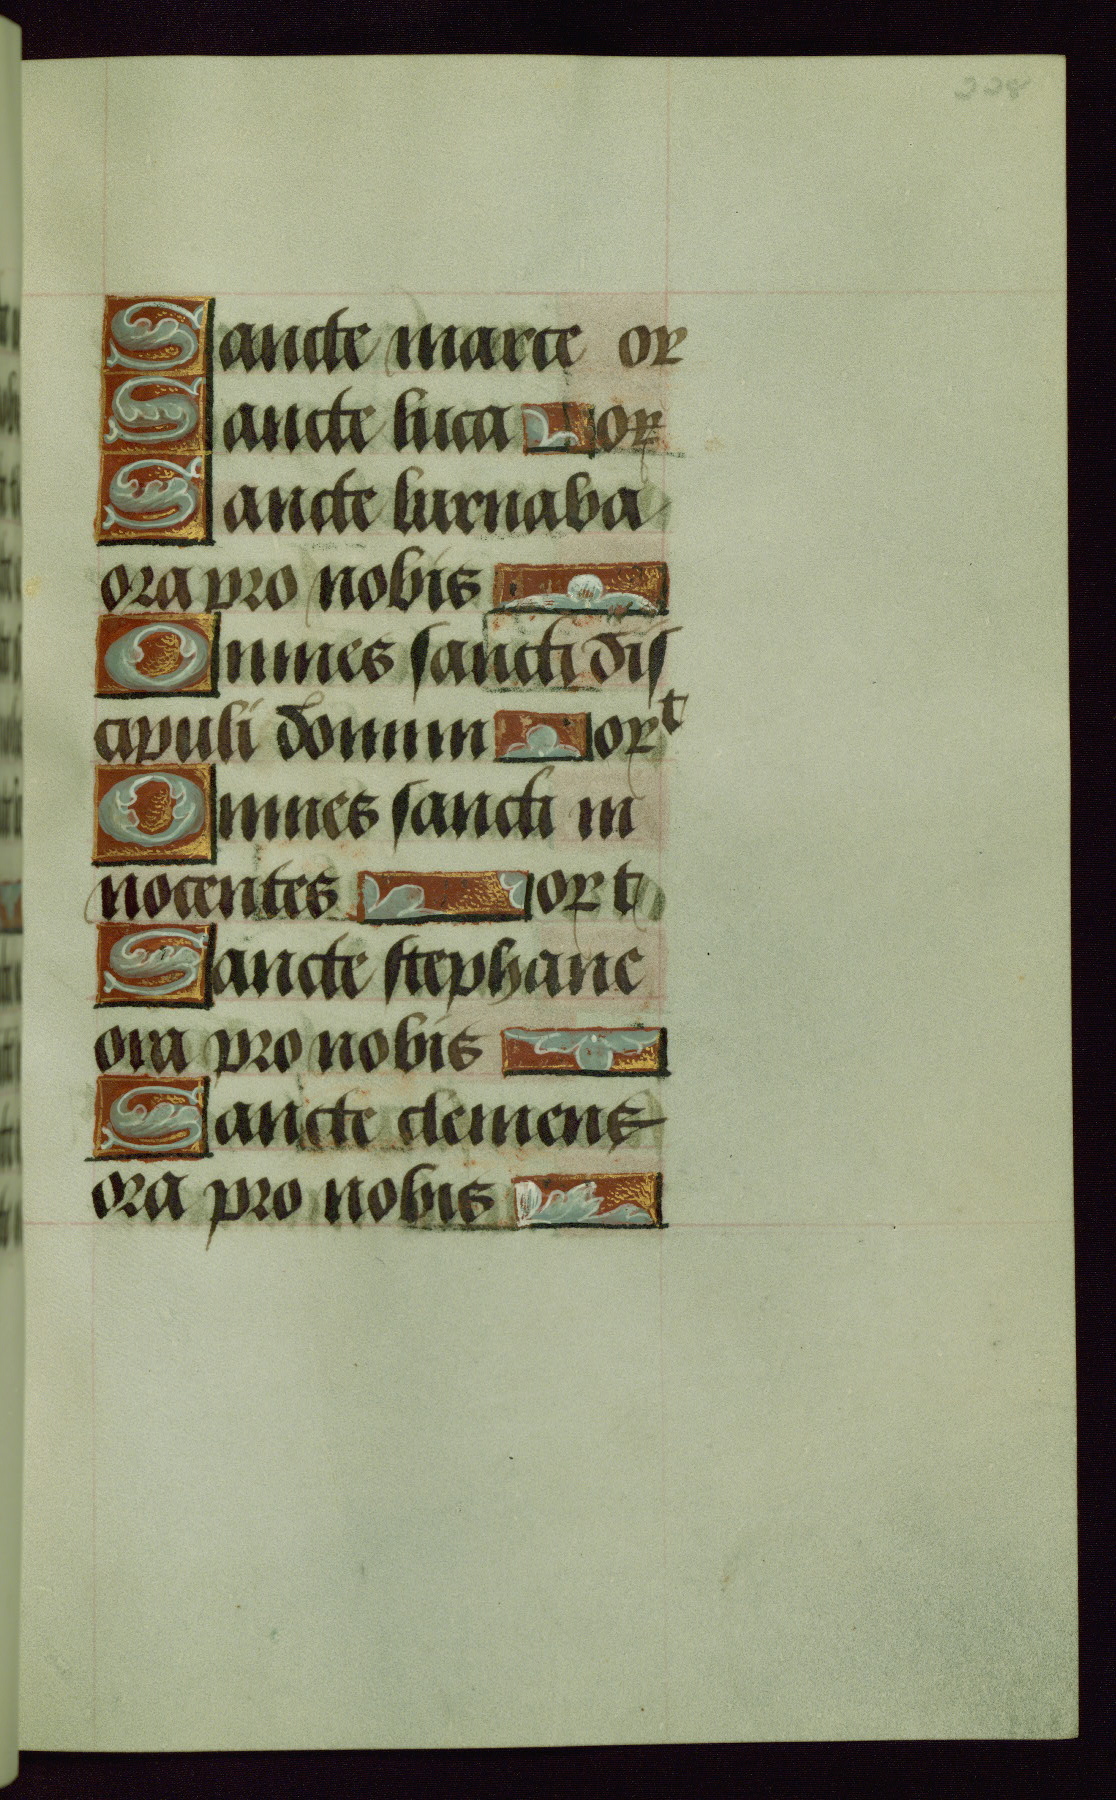 228
Sancte marce or
Sancte luca or
Sancte barnaba
ora pro nobis
Omnes sancti dis
cipuli domini ort
Omnes sancti in
nocentes ort
Sancte stephane
ora pro nobis
Sancte clemens
ora pro nobis